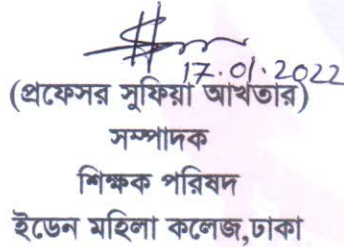 17.01.2022
(প্রফেসর সুফিয়া আখতার)
সম্পাদক
শিক্ষক পরিষদ
ইডেন মহিলা কলেজ,ঢাকা